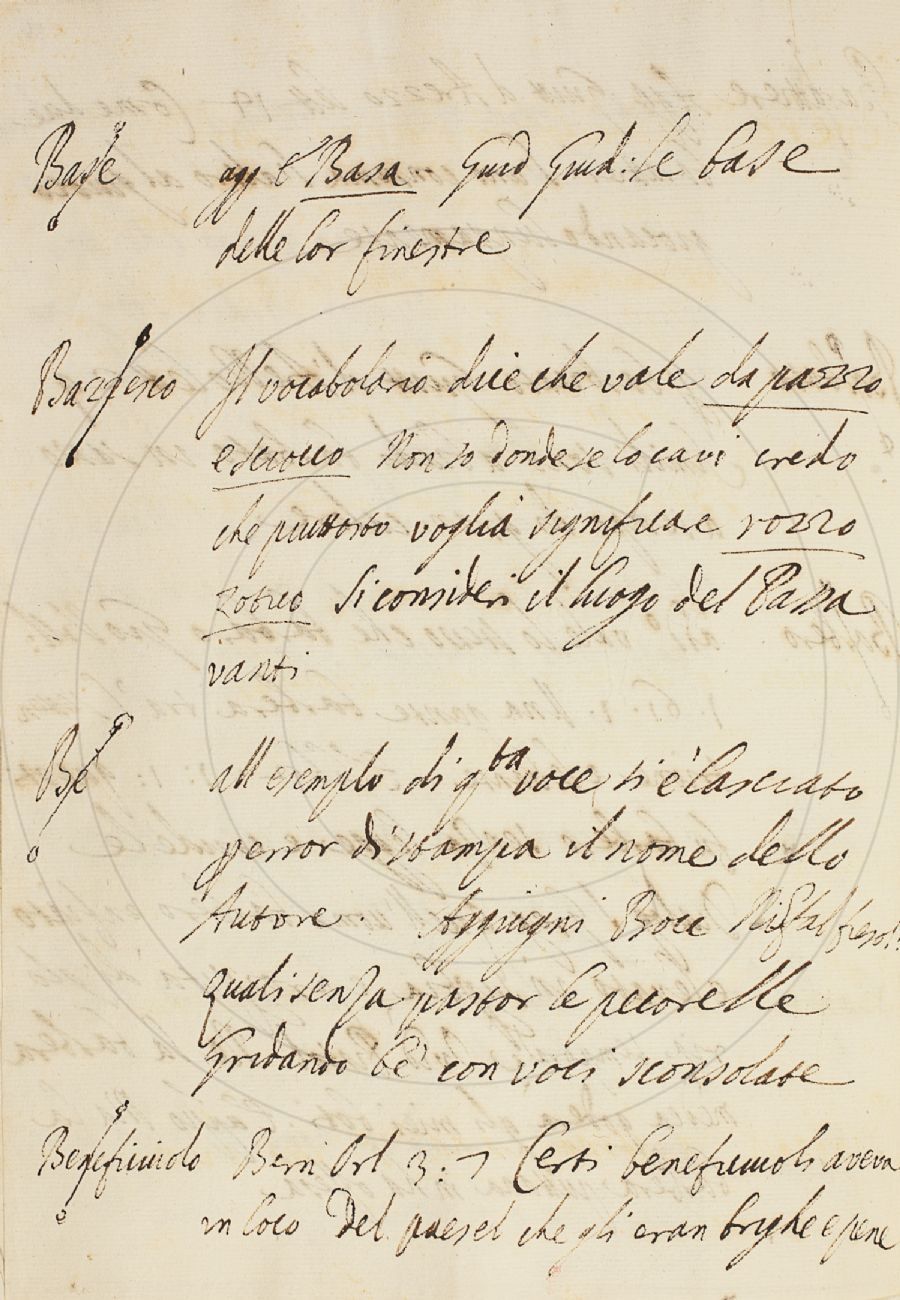 Base agg e Basa. Guid Guid: le base
delle lor finestre
Bazzesco Il vocabolario dice che vale da pazzo
e sciocco Non so donde se lo cavi credo
che piuttosto voglia significare rozzo
zotico Si consideri il luogo del Passa
vanti
Be all esempio di qta voce si è lasciato
per error di stampa il nome dello
Autore. Aggiugni Bocc Nif fiesol:
Quali senza pastor le pecorelle
Gridando bè con voci sconsolate
Benefiziolo Bern Orl 3: 7 Certi beneficiuoli aveva
in loco Del paesel che gli eran brighe e pene